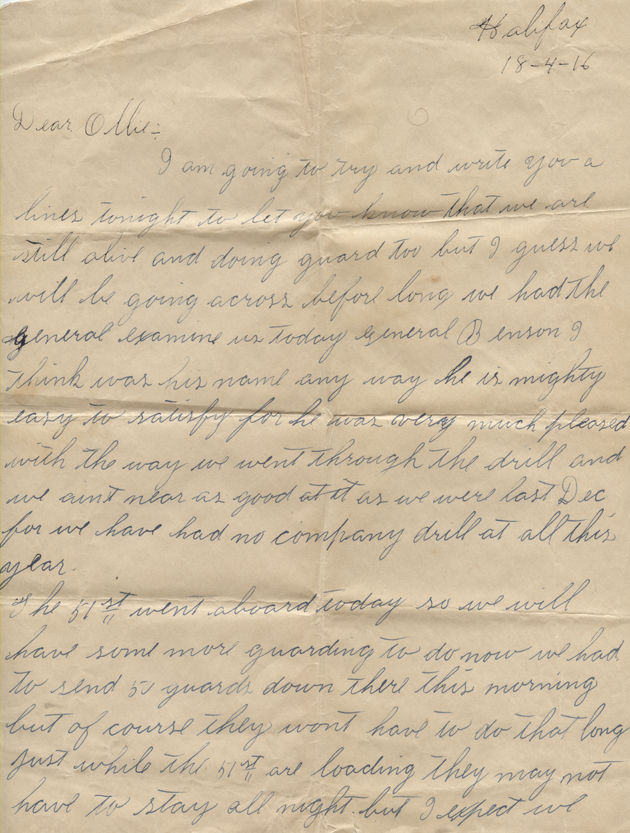 Halifax
18-4-16
Dear Ollie:-
I am going to try and write you a
lines tonight to let you know that we are
still alive and doing guard too but I guess we
will be going across before long we had the
General examine us today General Benson I
think was his name any way he is mighty
easy to satisfy for he was very much pleased
with the way we went through the drill and
we aint near as good at it as we were last Dec
for we have had no company drill at all this
year.
The 51st went aboard today so we will
have some more guarding to do now we had
to send 50 guards down there this morning
but of course they wont have to do that long
just while the 51st are loading they may not
have to stay all night but I expect we